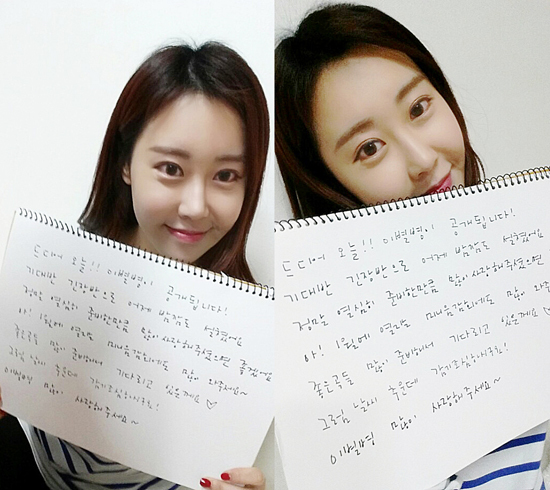 드디어 오늘!! 이별병이 공개됩니다!
기대반 긴장반으로 어제 밤잠도 설쳤어요
정말 열심히 준비한만큼 많이 사랑해주셨으면 좋겠어요
아! 1월에 열리는 미니음감회에도 많이 와주세요~
좋은곡들 많이 준비해서 기다리고 있을게요 ♡
그럼 날씨 추운데 감기조심하시구요!
이별병 많이 사랑해주세요~
드디어 오늘!! 이별병이 공개됩니다!
기대반 긴장반으로 어제 밤잠도 설쳤어요
정말 열심히 준비한만큼 많이 사랑해주셨으면
아! 1월에 열리는 미니음감회에도 많이
좋은곡들 많이 준비해서 기다리고 있을게요
그럼 날씨 추운데 감기조심하시구요!
이별병 많이 사랑해주세요~